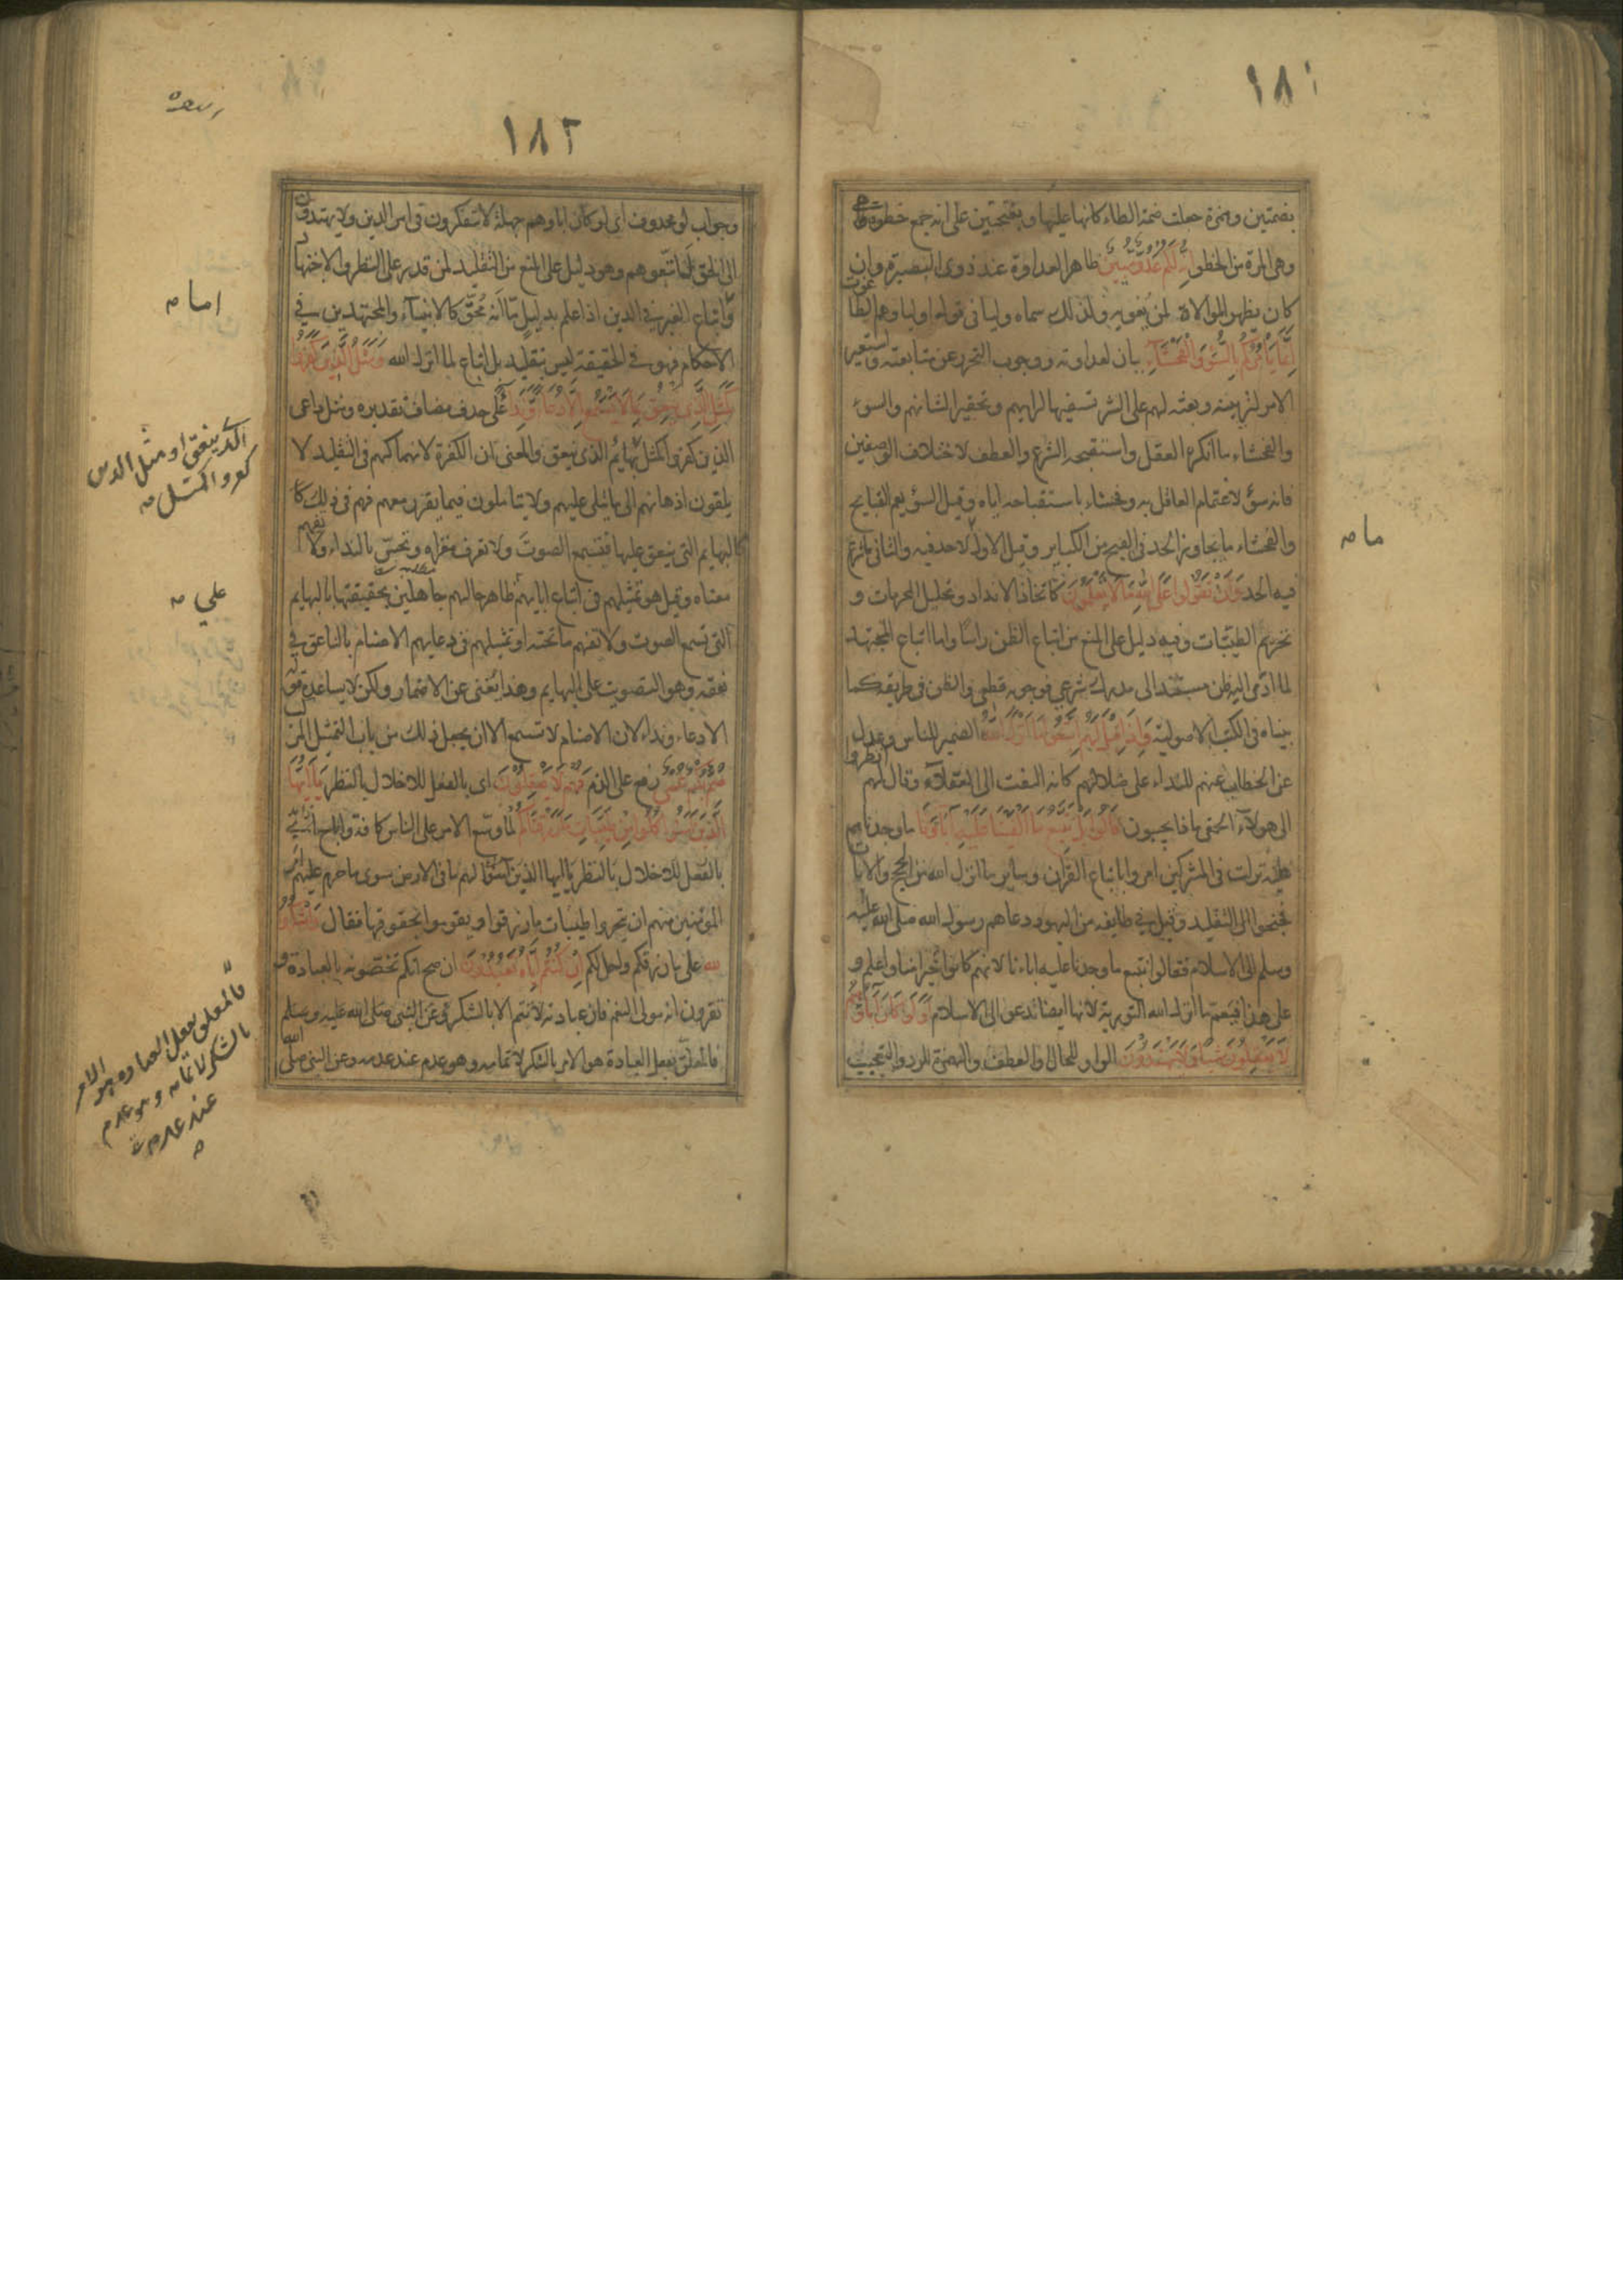 ١٨١
بضمتين وهمزة جعلت ضمة الطاء كانها عليها وبفتحتين على انه جمع خطوة
وهى المرة من الخطو انه لكم عدو مبين ظاهر العداوة عند ذوى البصيرة وان
كان يظهر الموالاة لمن يغويه ولذلك سماه وليا فى قوله اولياوهم الطاغوت
انما يامركم بالسوء والفحشاء بيان لعداوته ووجوب التحرز عن متابعته واستعير
الامر لتزيينه وبعثه لهم على الشر تسفيها لرايهم وتحقيرا لشانهم والسوء
والفحشاء ما انكره العقل واستقبحه الشرع والعطف لاختلاف الوصفين
فانه سوء لاغتمام العاقل به وفحشاء باستقباحه اياه وقيل السوء يعم القبايح
والفحشاء ما يجاوز الحد فى القبح من الكباير وقيل الاول ما لاحد فيه والثانى ما شرع
مام
فيه الحد وان تقولوا على الله ما لا تعلمون كاتخاذ الانداد وتحليل المحرمات و
تحريم الطيبات وفيه دليل على المنع من اتباع الظن راسا واما اتباع المجتهد
لما ادى اليه ظن مستند الى مدرك شرعي فوجوبه قطعى والظن فى طريقه كما
بيناه فى الكتب الاصولية واذا قيل لهم اتبعوا ما انزل الله الضمير للناس وعدل
عن الخطاب عنهم للنداء على ضلالهم كانه التفت الى العقلاء وقال لهم انظروا
الى هولاء الحمقى ماذا يجيبون قالوا بل نتبع ما الفينا عليه اباءنا ما وجدناهم
عليه نزلت فى المشركين امروا باتباع القران وساير ما انزل الله من الحجج والايات
فجنحوا الى التقليد وقيل في طايفه من اليهود دعاهم رسول الله صلى الله عليه
وسلم الى الاسلام فقالوا نتبع ما وجدنا عليه اباءنا لانهم كانوا خيرا منا واعلم و
على هذا فيعم ما انزل الله التورية لانها ايضا تدعوا الى الاسلام اولو كان اباؤهم
لا يعقلون شيئا ولا يهتدون الواو للحال او العطف والهمزة للرد والتعجيب
١٨٢
وجواب لو محذوف اى لو كان اباوهم جهلة لا يتفكرون فى امر الدين ولا يهتدون
الى الحق لما اتبعوهم وهو دليل على المنع من التقليد لمن قدر على النظر والاجتهاد
واتباع الغير في الدين اذا علم بدليل ما انه محق كالانبياء والمجتهدين في
امام
الاحكام فهو في الحقيقة ليس بتقليد بل اتباع لما انزل الله ومثل الذين كفروا
كمثل الذى ينعق بما لا يسمع الا دعاء ونداء على حذف مضاف تقديره ومثل داعى
الذين كفروا كمثل بهايم الذى ينعق والمعنى ان الكفرة لانهماكهم فى التقليد لا
الذى ينعق او مثل الذين
كفروا كمثل
يلقون اذهانهم الى ما يتلى عليهم ولا يتاملون فيما يقرر معهم فهم فى ذلك كا
كالبهايم التى ينعق عليها فتسمع الصوت ولا تعرف مغزاه وتحس بالنداء ولا تفهم
معناه وقيل هو تمثيلهم فى اتباع ابايهم ظاهر حالهم جاهلين بحقيقتها بالبهايم
على
التى تسمع الصوت ولا تفهم ما تحته او تمثيلهم فى دعايهم الاصنام بالناعق في
نعقه وهو التصويت على البهايم وهذا يغنى عن الاضمار ولكن لا يساعده قوله
الا دعاء ونداء لان الاصنام لا تسمع الا ان يجعل ذلك من باب التمثيل المركب
صم بكم عمى رفع على الذم فهم لا يعقلون اى بالفعل للاخلال بالنظر يا ايها
الذين امنوا كلوا من طيبات ما رزقناكم لما وسع الامر على الناس كافة واباح
بالفعل للاخلال بالنظر يا ايها الذين امنوا لهم ما فى الارض سوى ما حرم عليهم امر
المؤمنين منهم ان يتحروا طيبات ما رزقوا ويقوموا بحقوقها فقال واشكروا
لله على ما رزقكم واحل لكم ان كنتم اياه تعبدون ان صح انكم تخصونه بالعبادة و
تقرون انه مولى النعم فان عبادته لا تتم الا بالشكر وعن النبى صلى الله عليه وسلم
فالمعلق بفعل العبادة هو الامر بالشكر لاتمامه وهو عدم عند عدمه وعن النبى صلى الله
فالمعلق بفعل العباده هو الامر
بالشكر لاتمامه وهو عدم
عند عدمه